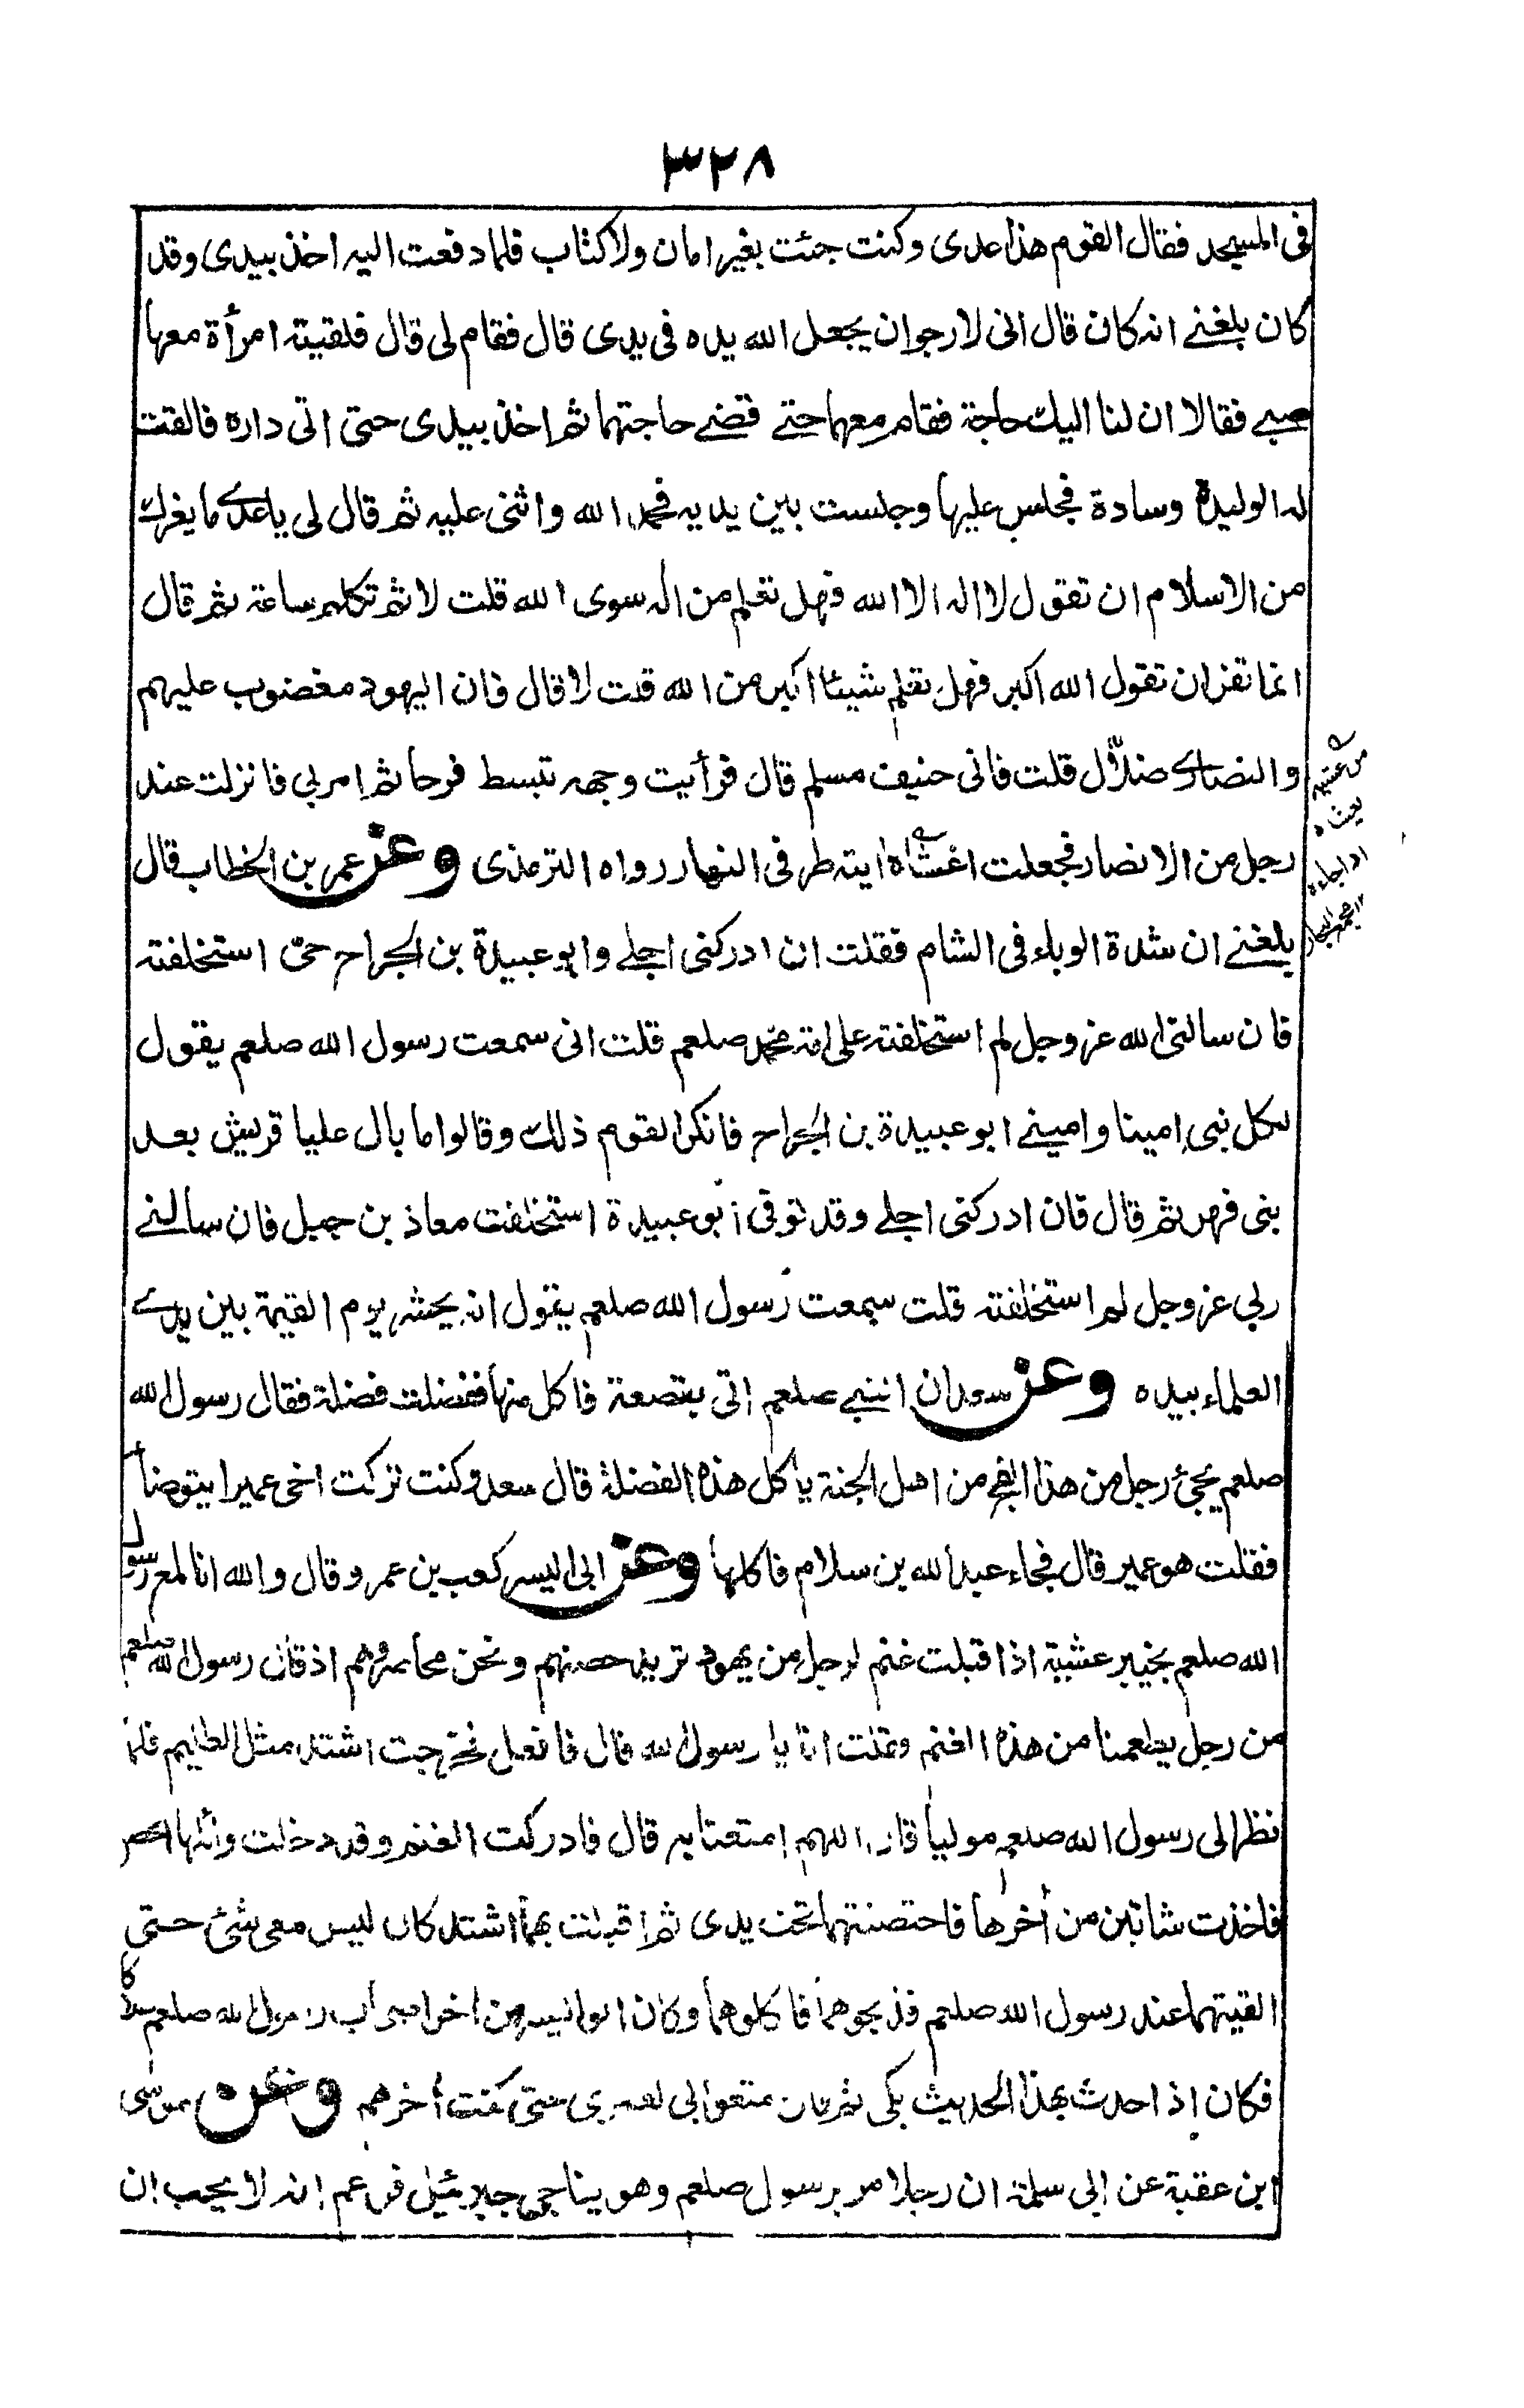 ٣٢٨
فى المسجد فقال القوم هذا عدى وكنت جئت بغير امان ولا كتاب فلما دفعت اليه اخذ بيدى وقد
كان بلغنے انه كان قال انى لارجو ان يجعل الله يده فى يدى قال فقام لى قال فلقيته امرأة معها
صبے فقالا ان لنا اليك حاجة فقام معهما حتے قضے حاجتهما ثم اخذ بيدى حتى اتى داره فالقت
له الوليدة وسادة فجلس عليها وجلست بين يديه فحمد الله واثنى عليه ثم قال لى ياعدے ما يفرك
من الاسلام ان تقول لا اله الا الله فهل تعلم من اله سوى الله قلت لا ثم تكلم ساعة ثم قال
انما تفر ان تقول الله اكبر فهل تعلم شيئا اكبر من الله قلت لا قال فان اليهود مغضوب عليهم
والنصارے ضلّال قلت فانى حنيف مسلم قال فرأيت وجهه تبسط فرحا ثم امر بى فانزلت عند
رجل من الانصار فجعلت اغشاه ايته طرفى النهار رواه الترمذى وعن عمر بن الخطاب قال
بلغنے ان شدة الوباء فى الشام فقلت ان ادركنى اجلے وابو عبيدة بن الجراح حى استخلفته
فان سالنى الله عز وجل لم استخلفته على امة محمد صلعم قلت انى سمعت رسول الله صلعم يقول
لكل نبى امينا وامينے ابو عبيدة بن الجراح فانكر القوم ذلك وقالوا ما بال عليا قريش بعد
بنى فهر ثم قال فان ادركنى اجلے وقد توفى ابو عبيدة استخلفت معاذ بن جبل فان سالنے
ربى عز وجل لم استخلفته قلت سمعت رسول الله صلعم يقول انه يحشر يوم القيمة بين يدے
العلماء بيده وعن سعد ان النبے صلعم اتى بقصعة فاكل منها ففضلت فضلة فقال رسول الله
صلعم يجئ رجل من هذا الفج من اهل الجنة يأكل هذه الفضلة قال سعد وكنت تركت اخى عميرا يتوضأ
فقلت هو عمير قال فجاء عبد الله بن سلام فاكلها وعن ابى اليسر كعب بن عمرو قال والله انا لمع رسول
الله صلعم بخيبر عشية اذ اقبلت غنم لرجل من يهود تريد حصنهم ونحن محاصروهم اذ قال رسول الله صلعم
من رجل يطعمنا من هذه الغنم وقلت انا يا رسول الله قال فافعل فخرجت اشتد مثل الظليم فلما
نظر الى رسول الله صلعم موليا قال اللهم امتعنا به قال فادركت الغنم وقد دخلت وائلها الحصن
فاخذت شاتين من أخرها فاحتضنتهما تحت يدى ثم اقبلت بهما اشتد كان ليس معى شئ حتى
القيتهما عند رسول الله صلعم فذبحوهما فاكلوهما وكان ابو اليسر من أخر اصحاب رسول الله صلعم هلاكا
فكان إذ احدث بهذا الحديث بكى ثم قال متعوا بى لعمرى حتى كنت أخرهم وعن موسى
ابن عقبة عن ابى سلمة ان رجلا مر برسول صلعم وهو يناجى جبرئيل فزعم انه لا يحب ان